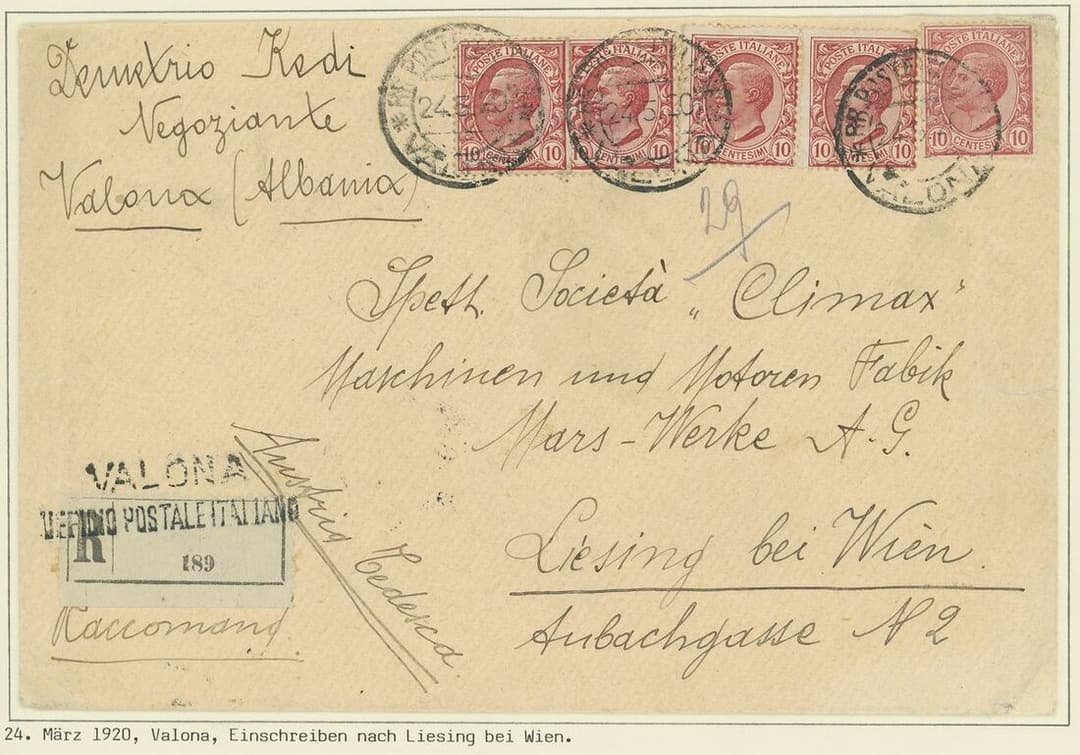 Demetrio Kedi
Negoziante
Valona (Albania)
POSTE ITALIANE
10 CENTESIMI 10
POSTE ITALIANE
10 CENTESIMI 10
POSTE ITALIANE
10 CENTESIMI 10
POSTE ITALIANE
10 CENTESIMI 10
POSTE ITALIANE
10 10
29
Spett. Società „Climax"
Maschinen und Motoren Fabik
Mars-Werke A.G.
Liesing bei Wien.
Aubachgasse N 2
Austria Tedesca
VALONA
UFFICIO POSTALE ITALIANO
R
189
Raccomand.
24. März 1920, Valona, Einschreiben nach Liesing bei Wien.